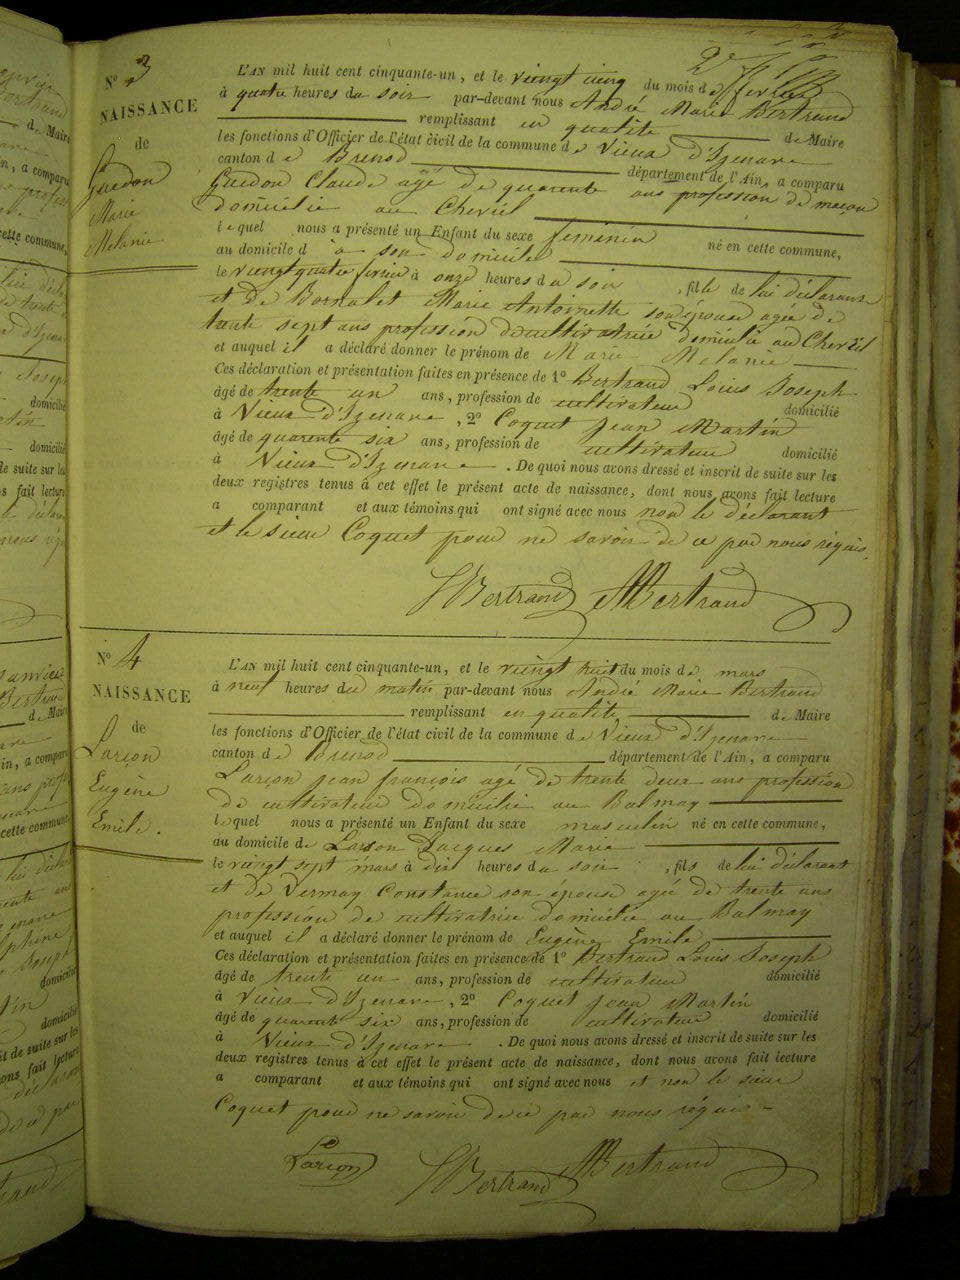 N° 3
NAISSANCE
de
Guedon
Marie
Melanie
L'AN mil huit cent cinquante-un, et le vingt cinq du mois de fevrier
à quatre heures du soir par-devant nous André Marie Bertrand
remplissant en qualité de Maire
les fonctions d'Officier de l'état civil de la commune de Vieux d'Izenave
canton de Brenod département de l'Ain, a comparu
Guedon Claude agé de quarente ans profession de maçon
domicilié au Chevril
lequel nous a présenté un Enfant du sexe feminin né en cette commune,
au domicile d à son domicile
le vingt quatre fevrier à onze heures du soir, fille de lui déclarant
et de Bornalet Marie Antoinette son épouse agée de
trente sept ans profession de cultivatrice domicilié au Chevril
et auquel il a déclaré donner le prénom de Marie Melanie
Ces déclaration et présentation faites en présence de 1° Bertrand Louis Joseph
âgé de trente un ans, profession de cultivateur domicilié
à Vieux d'Izenave, 2° Coquet Jean Martin
âgé de quarente six ans, profession de cultivateur domicilié
à Vieux d'Izenave. De quoi nous avons dressé et inscrit de suite sur les
deux registres tenus à cet effet le présent acte de naissance, dont nous avons fait lecture
a comparant et aux témoins qui ont signé avec nous non le déclarant
et le sieur Coquet pour ne savoir de ce par nous réquis.
Bertrand AMBertrand
N° 4
NAISSANCE
de
Larçon
Eugène
Emile.
L'AN mil huit cent cinquante-un, et le vingt huit du mois de mars
à neuf heures du matin par-devant nous André Marie Bertrand
remplissant en qualité de Maire
les fonctions d'Officier de l'état civil de la commune de Vieux d'Izenave
canton de Brenod département de l'Ain, a comparu
Larçon Jean françois agé de trente deux ans profession
de cultivateur domicilié au Balmay
lequel nous a présenté un Enfant du sexe masculin né en cette commune,
au domicile de Larson Jacques Marie
le vingt sept mars à dix heures du soir, fils de lui déclarant
et de Vermay Constance son épouse agée de trente ans
profession de cultivatrice domicilié au Balmay
et auquel il a déclaré donner le prénom de Eugène Emile
Ces déclaration et présentation faites en présence de 1° Bertrand Louis Joseph
âgé de trente un ans, profession de cultivateur domicilié
à Vieux d'Izenave, 2° Coquet Jean Martin
âgé de quarente six ans, profession de cultivateur domicilié
à Vieux d'Izenave. De quoi nous avons dressé et inscrit de suite sur les
deux registres tenus à cet effet le présent acte de naissance, dont nous avons fait lecture
a comparant et aux témoins qui ont signé avec nous et non le sieur
Coquet pour ne savoir de ce par nous réquis
Larçon Bertrand AMBertrand